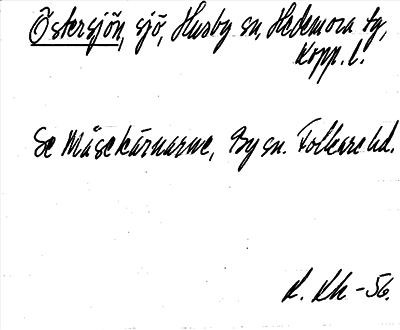 Östersjön, sjö, Husby sn, Hedemora tg,
Kopp. l.
Se Måsekärnarne, By sn. Folkare hd.
K. Kh -56.